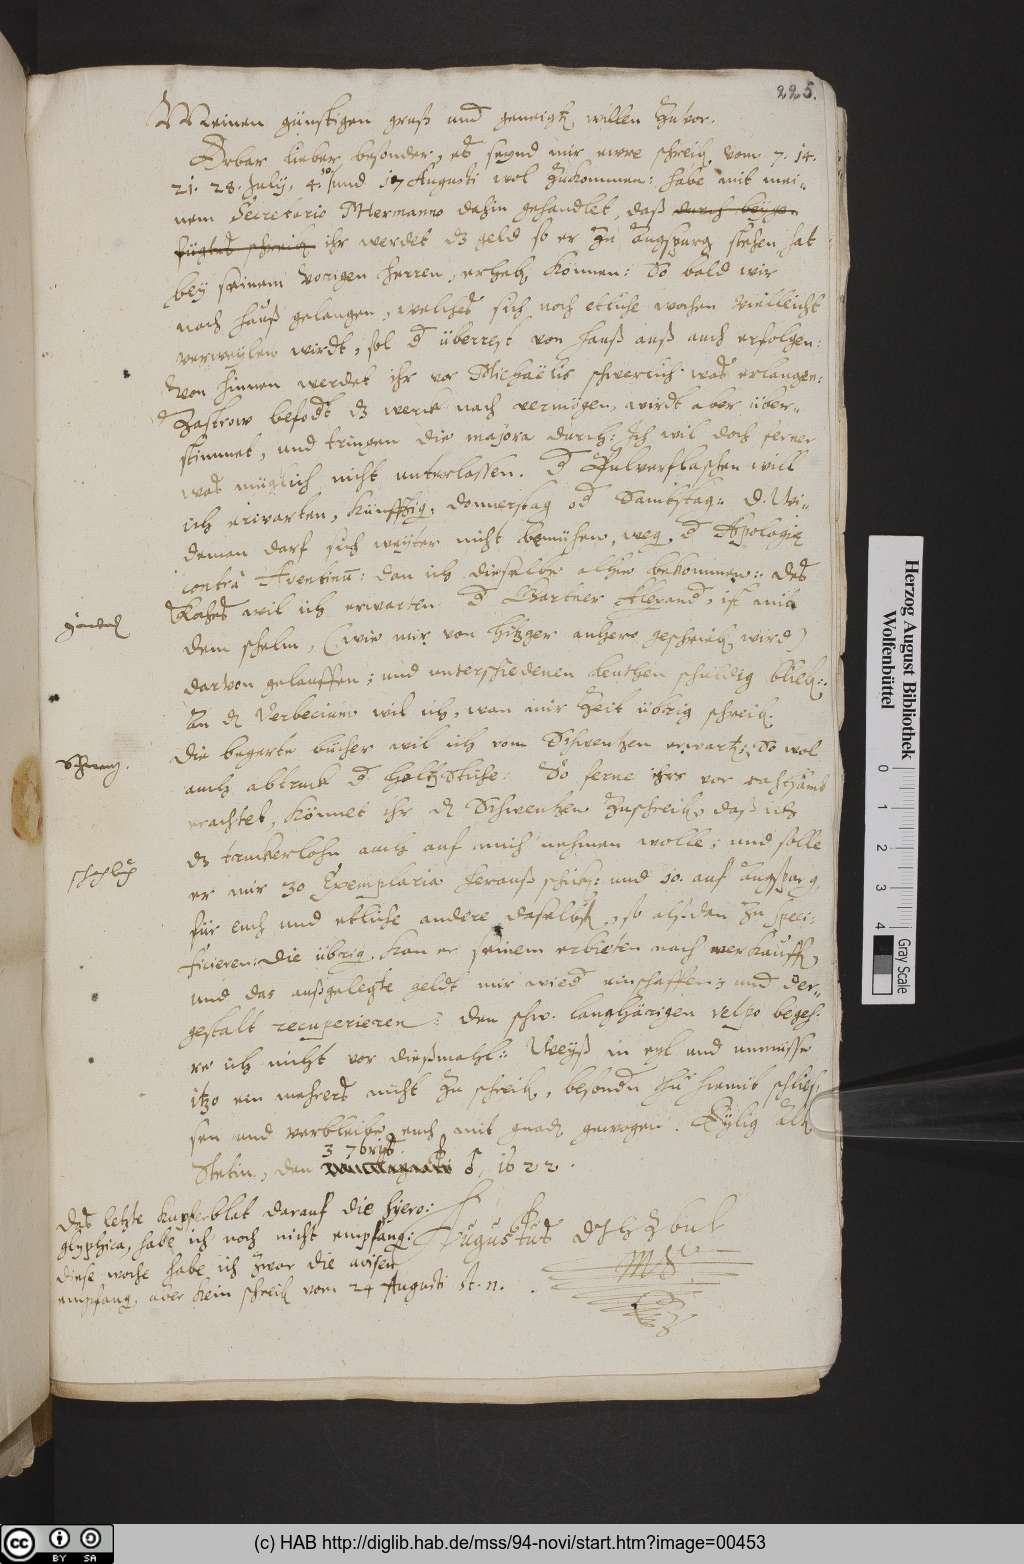 225.
Meinen günstigen gruß und geneigtē willen zuvor.
Erbar lieber besonder, etc seynd mir ewre schreib. vom 7. 14.
21. 28. July, 4. und 17 Augusti wol zukommen: habe mit mei-
nem Secretario MHermanno dahin gehandlet, daß durch beyge-
fügtes schreib. ihr werdet dz geld so er zu Augspurg stehen hat
bey seinem vorigen herren, erheb. können: So bald wir
nach hauß gelangen, welches sich noch etliche wochen villeicht
verweylen wirdt, sol d überrest von hauß auß auch erfolgen:
von hinnen werdet ihr vor Michaëlis schwerlich was erlangen:
Zastrow befodt dz werk nach vermögen, wirdt aber über-
stimmet, und tringen die majora durch: Ich wil doch ferner
was müglich nicht unterlassen. d Pulverflaschen will
ich erwarten, künfftig. donnerstag od Sambstag: D. Wi-
deman darf sich weyter nicht bemühen, weg. d Apologia
contra Aventinū: dan ich dieselbe alhie bekommen: des
wil ich erwarten d Gartner, ist mit
dem schelm, (wie mir von Hitzger anhero geschrieb. wird)
darvon gelauffen; und unterschiedenen leuthen schuldig blieb.:
An d Verbecium wil ich, wan mir Zeit übrig schreib.
die begerte bücher wil ich vom Schwentzen erwart. So wol
auch abtruk d holtz Stiche: So ferne ihrs vor rahtsamb
erachtet, könnet ihr d Schwentzen zuschreib. daß ich
dz truckerlohn auch auf mich nehmen wolle; und solle
er mir 30 Exemplaria herauß schick: und 10. auf Augspurg,
für euch und etliche andere daselbst, so alß dan zu speci-
ficieren: Die übrig. kan er seinem erbieten nach verkauff.
und das außgelegte geldt mir wied einschaffen; und der-
gestalt recuperieren: den schw. langhärigen velpo begeh-
re ich nicht vor dießmahl: Weyß in eyl und unmusse
itzo ein mehrers nicht zu schreib. besondn thu hiemit schließ-
sen und verbleibe euch mit gnad. gewogen. Eylig alt
3 7bris
Stetin, den 1622.
Das letzte kupferblat darauf die hyero-
glyphica, habe ich noch nicht empfang:
diese woche habe ich zwar die avisen
empfang. aber kein schreib vom 24 Augusti st. n.
Augustus DIHZBUL
Schwentz.
(c) HAB http://diglib.hab.de/mss/94-novi/start.htm?image=00453
Herzog August Bibliothek
Wolfenbüttel
0 1 2 3 4
Gray Scale
cc BY SA